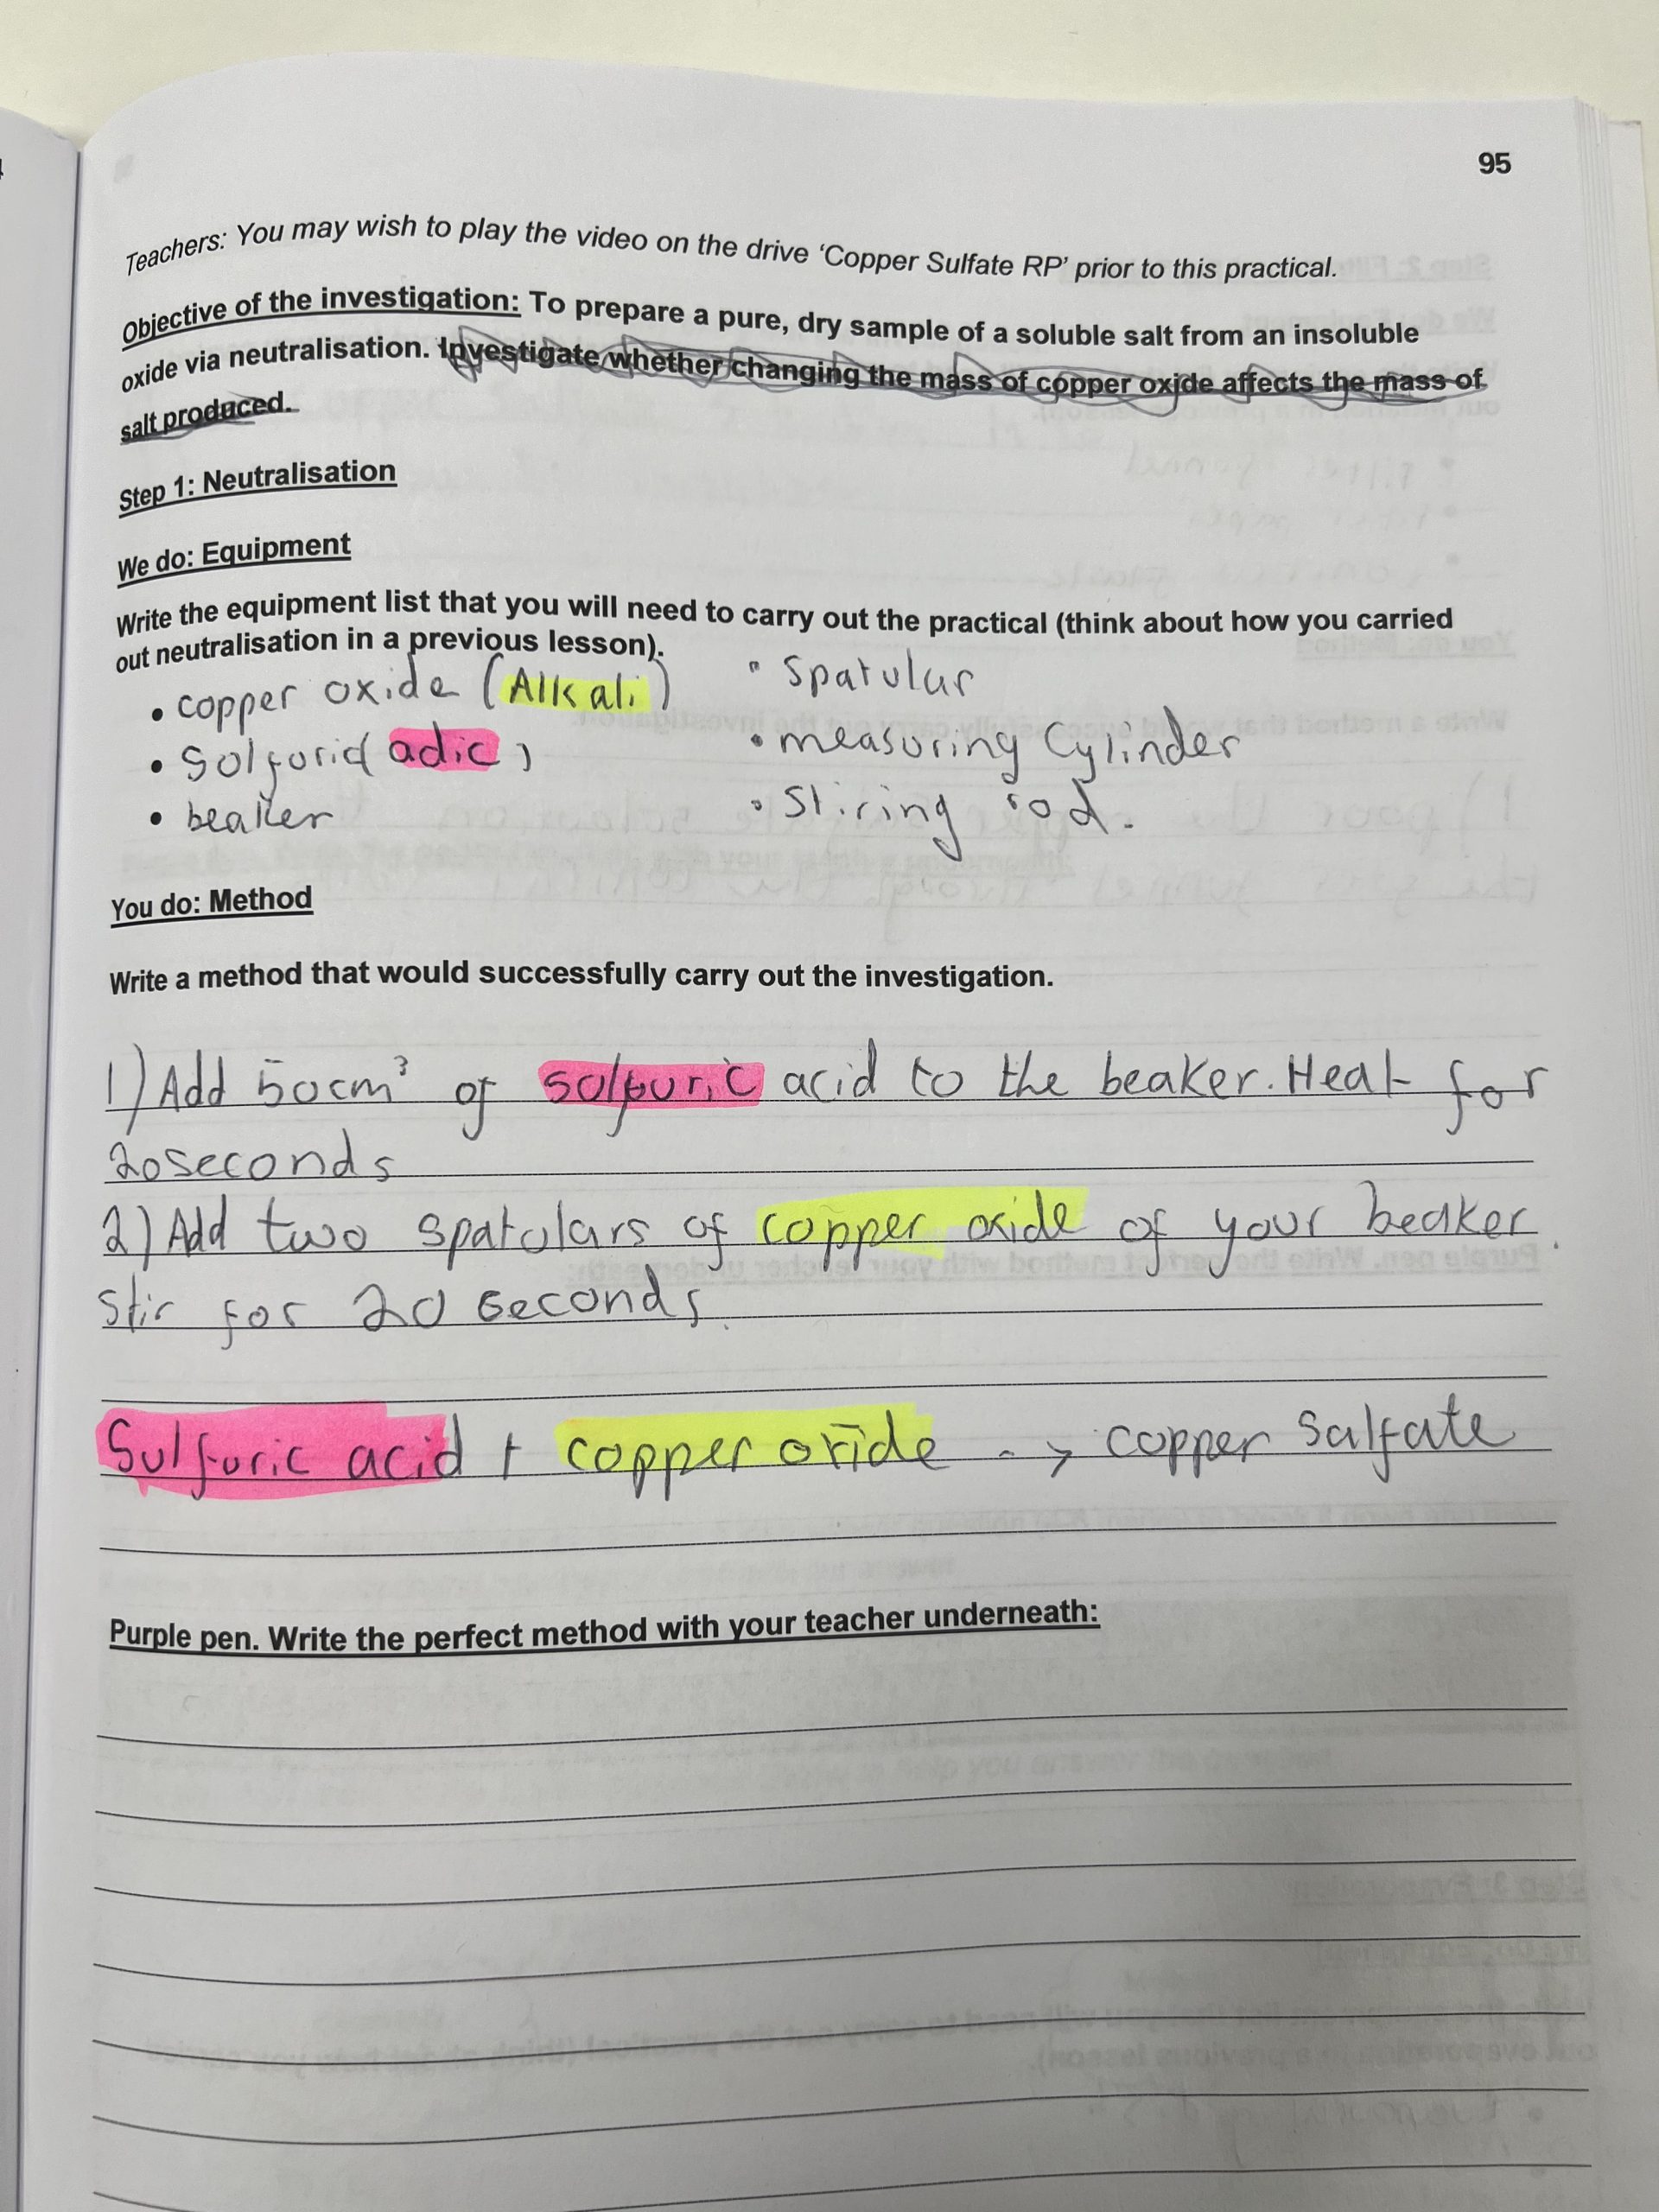 95
Teachers: You may wish to play the video on the drive ‘Copper Sulfate RP’ prior to this practical.
Objective of the investigation: To prepare a pure, dry sample of a soluble salt from an insoluble
oxide via neutralisation. Investigate whether changing the mass of copper oxide affects the mass of
salt produced.
Step 1: Neutralisation
We do: Equipment
Write the equipment list that you will need to carry out the practical (think about how you carried
out neutralisation in a previous lesson).
• copper oxide (Alkali)
• Solfuric(adic)
• beaker
• Spatular
• measuring Cylinder
• Stiring rod.
You do: Method
Write a method that would successfully carry out the investigation.
1) Add 50cm³ of solfuric acid to the beaker. Heat for
20seconds
2) Add two spatulars of copper oxide of your beaker.
Stir for 20 seconds.
Sulfuric acid + copper oxide -> copper Salfate
Purple pen. Write the perfect method with your teacher underneath: